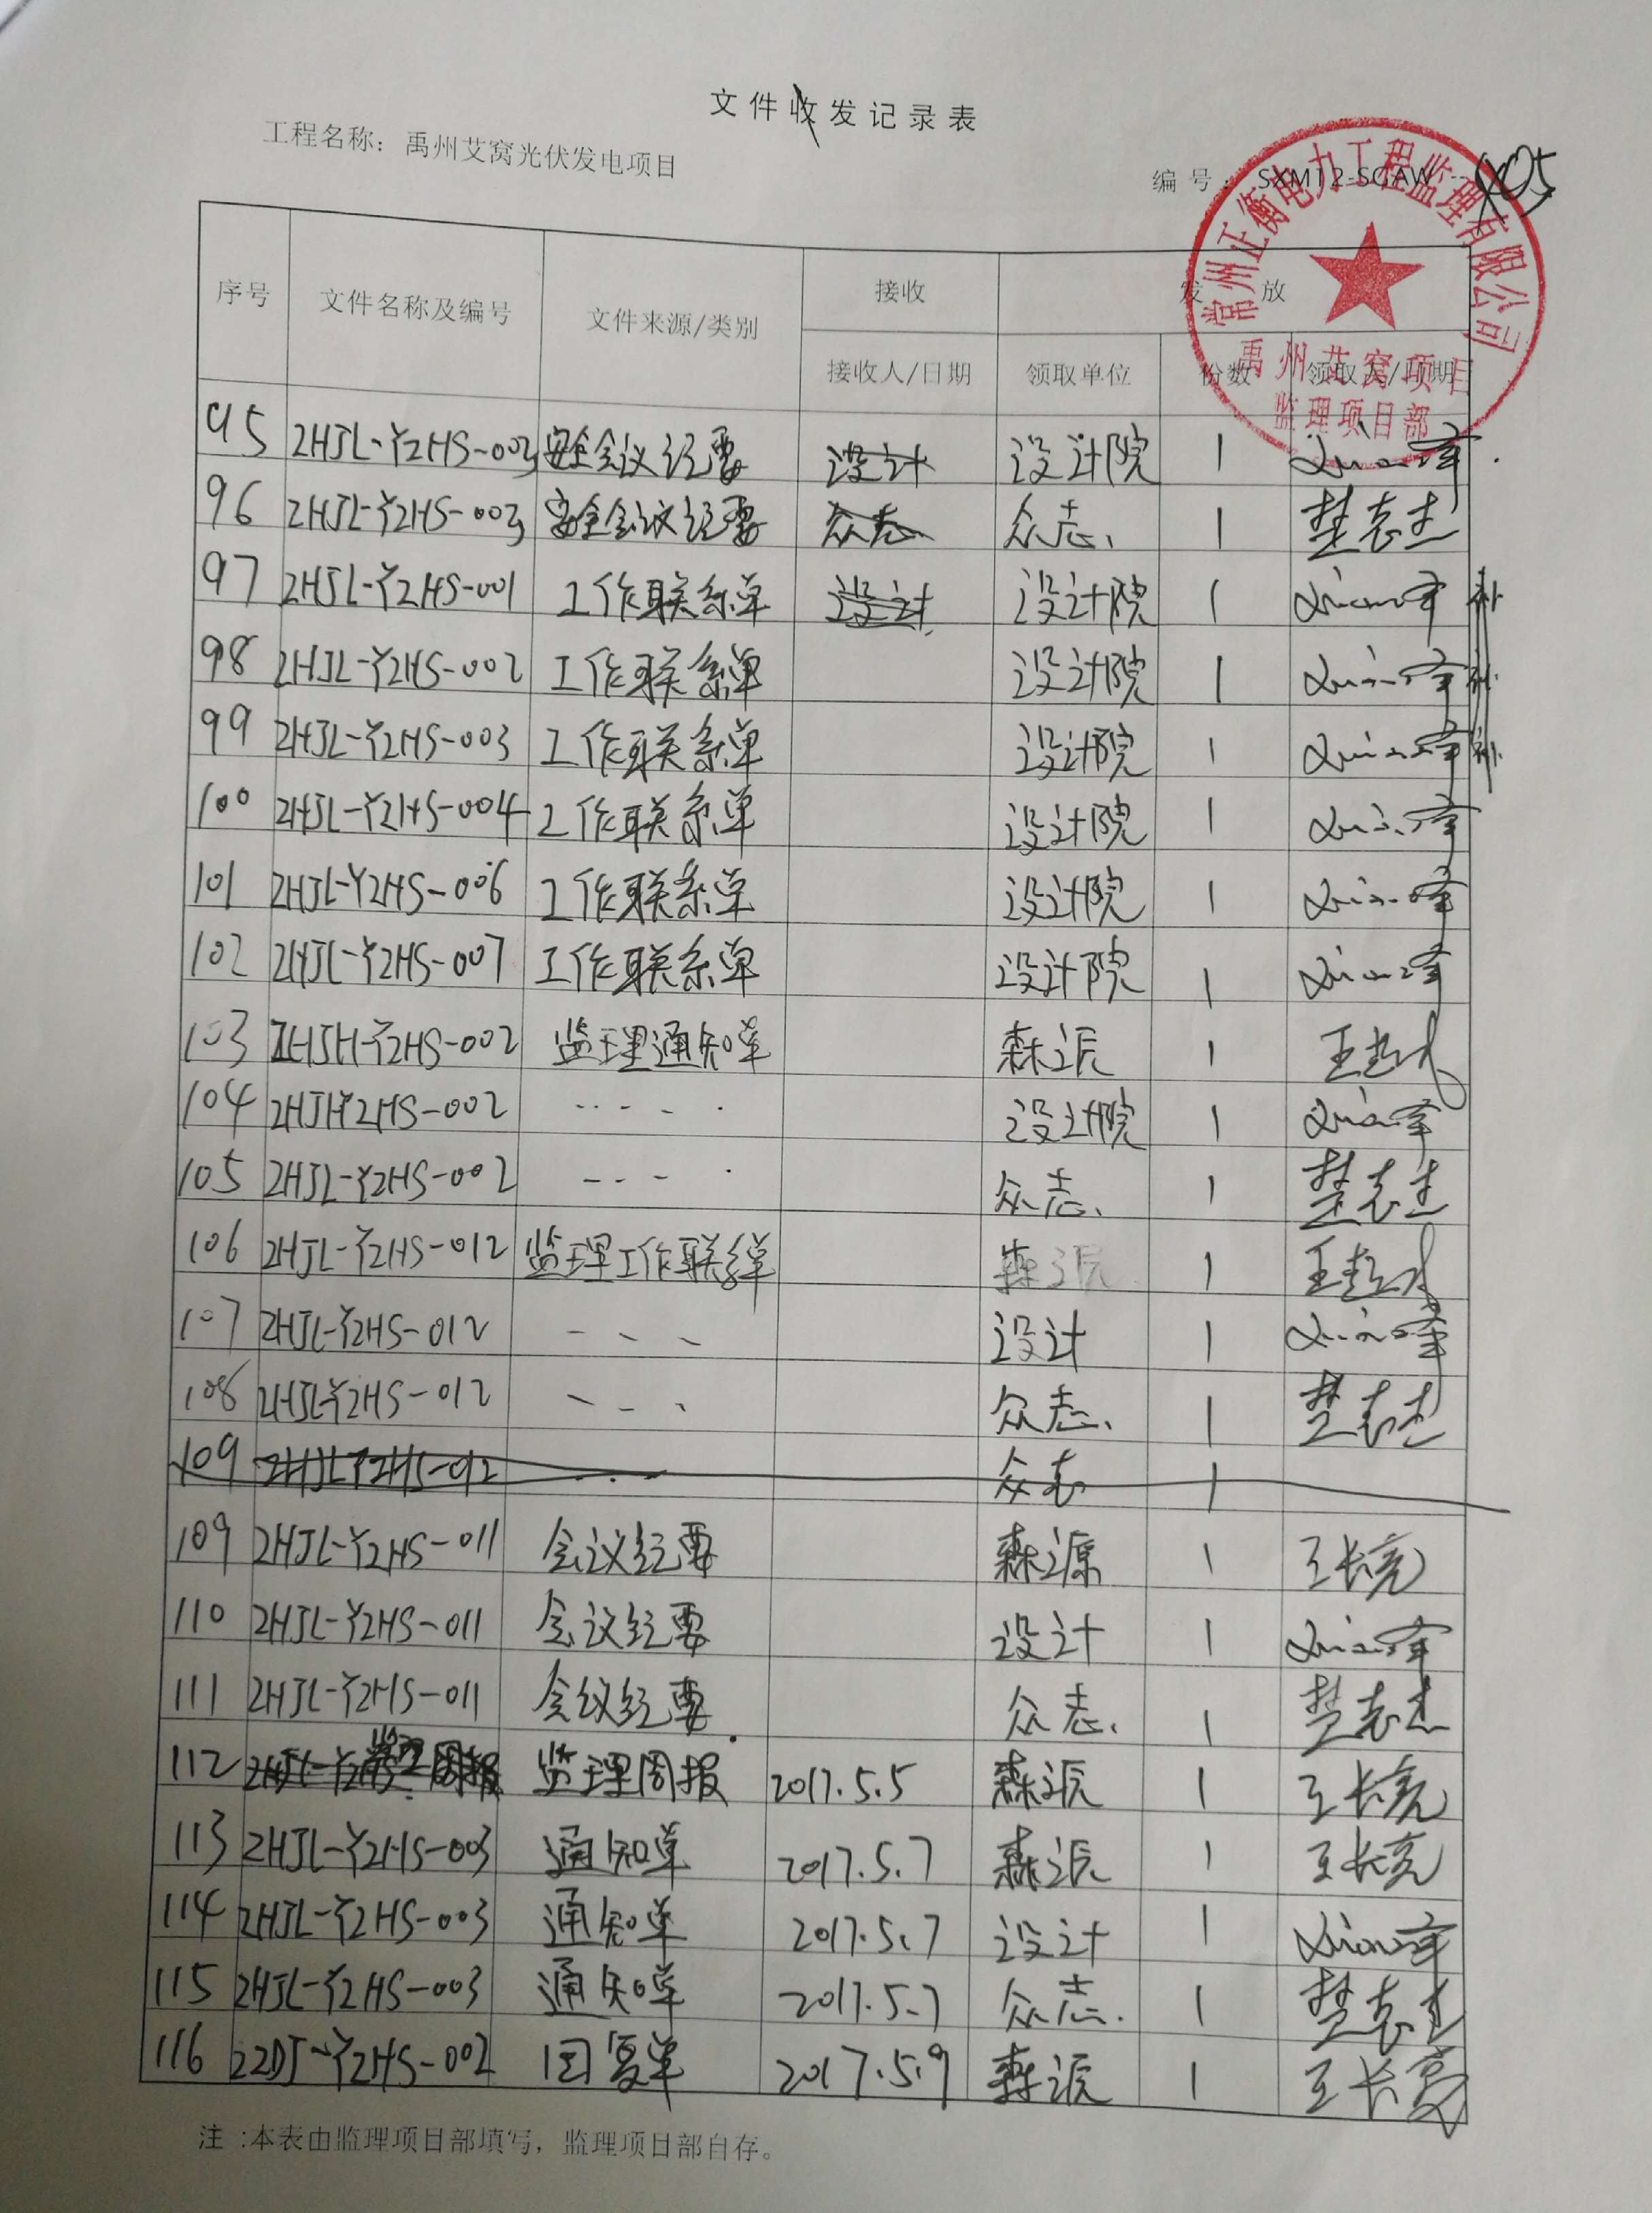 文件收发记录表
工程名称：禹州艾窝光伏发电项目
编号：SXM12-SGAW-005
常州正衡电力工程监理有限公司
禹州艾窝项目
监理项目部
序号 文件名称及编号 文件来源/类别 接收 发放
接收人/日期 领取单位 份数 领取人/日期
95 ZHJL-YZHS-003 安全会议纪要 设计 设计院 1
96 ZHJL-YZHS-003 安全会议纪要 众志 众志、 1 楚志杰
97 ZHJL-YZHS-001 工作联系单 设计 设计院 1 补
98 ZHJL-YZHS-002 工作联系单 设计院 1 补
99 ZHJL-YZHS-003 工作联系单 设计院 1 补
100 ZHJL-YZHS-004 工作联系单 设计院 1
101 ZHJL-YZHS-006 工作联系单 设计院 1
102 ZHJL-YZHS-007 工作联系单 设计院 1
103 ZHJH-YZHS-002 监理通知单 森源 1
104 ZHJHYZHS-002 ---- 设计院 1
105 ZHJL-YZHS-002 ---- 众志、 1 楚志杰
106 ZHJL-YZHS-012 监理工作联系单 森源 1
107 ZHJL-YZHS-012 --- 设计 1
108 ZHJL-YZHS-012 --- 众志、 1 楚志杰
109 ZHJL-YZHS-012 --- 众志 1
109 ZHJL-YZHS-011 会议纪要 森源 1 王长亮
110 ZHJL-YZHS-011 会议纪要 设计 1
111 ZHJL-YZHS-011 会议纪要 众志、 1 楚志杰
112 监理周报 2017.5.5 森源 1 王长亮
113 ZHJL-YZHS-003 通知单 2017.5.7 森源 1 王长亮
114 ZHJL-YZHS-003 通知单 2017.5.7 设计 1
115 ZHJL-YZHS-003 通知单 2017.5.7 众志. 1 楚志杰
116 ZZDJ-YZHS-002 回复单 2017.5.9 森源 1 王长亮
注：本表由监理项目部填写，监理项目部自存。